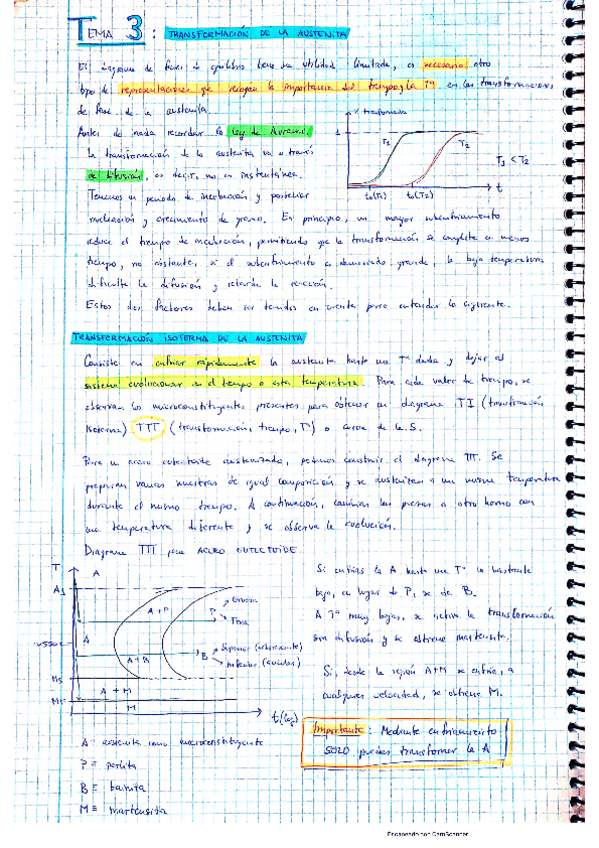 TEMA 3: TRANSFORMACIÓN DE LA AUSTENITA
El diagrama de fases de equilibrio tiene una utilidad limitada, es necesario otro
tipo de representaciones que recojan la importancia del tiempo y la Tª en las transformaciones
de fase de la austenita.
Antes de nada recordar la ley de Avrami.
La transformación de la austenita va a través
de difusión, es decir, no es instantánea.
Tenemos un periodo de incubación y posterior
nucleación y crecimiento de grano. En principio, un mayor subenfriamiento
reduce el tiempo de incubación, permitiendo que la transformación se complete en menos
tiempo, no obstante, si el subenfriamiento es demasiado grande, la baja temperatura
dificulta la difusión y retarda la reacción.
Estos dos factores deben ser tenidos en cuenta para entender lo siguiente.
% transformado
1
T1
T2
T1 < T2
to(T1)
to(T2)
t
TRANSFORMACIÓN ISOTERMA DE LA AUSTENITA
Consiste en enfriar rápidamente la austenita hasta una Tª dada y dejar al
sistema evolucionar en el tiempo a esta temperatura. Para cada valor de tiempo, se
observan los microconstituyentes presentes para obtener un diagrama TI (transformación
isoterma) TTT (transformación, tiempo, Tª) o curva de la S.
Para un acero eutectoide austenizado, podemos construir el diagrama TTT. Se
preparan varias muestras de igual composición y se austenizan a una misma temperatura
durante el mismo tiempo. A continuación, cambian las piezas a otro horno con
una temperatura diferente y se observa la evolución.
Diagrama TTT para ACERO EUTECTOIDE
T
A
A1
A+P
P
Gruesa
Fina
A
A+B
B
Superior (arborescente)
Inferior (acicular)
Ms
A + M
Mf
M
t(log)
Si enfrías la A hasta una Tª lo bastante
baja, en lugar de P, se da B.
A Tª muy bajas, se activa la transformación
sin difusión y se obtiene martensita.
Si, desde la región A+M se enfría, a
cualquier velocidad, se obtiene M.
Importante: Mediante enfriamiento
SOLO puedes transformar la A
A = austenita como microconstituyente
P = perlita
B = bainita
M = martensita
Escaneado con CamScanner